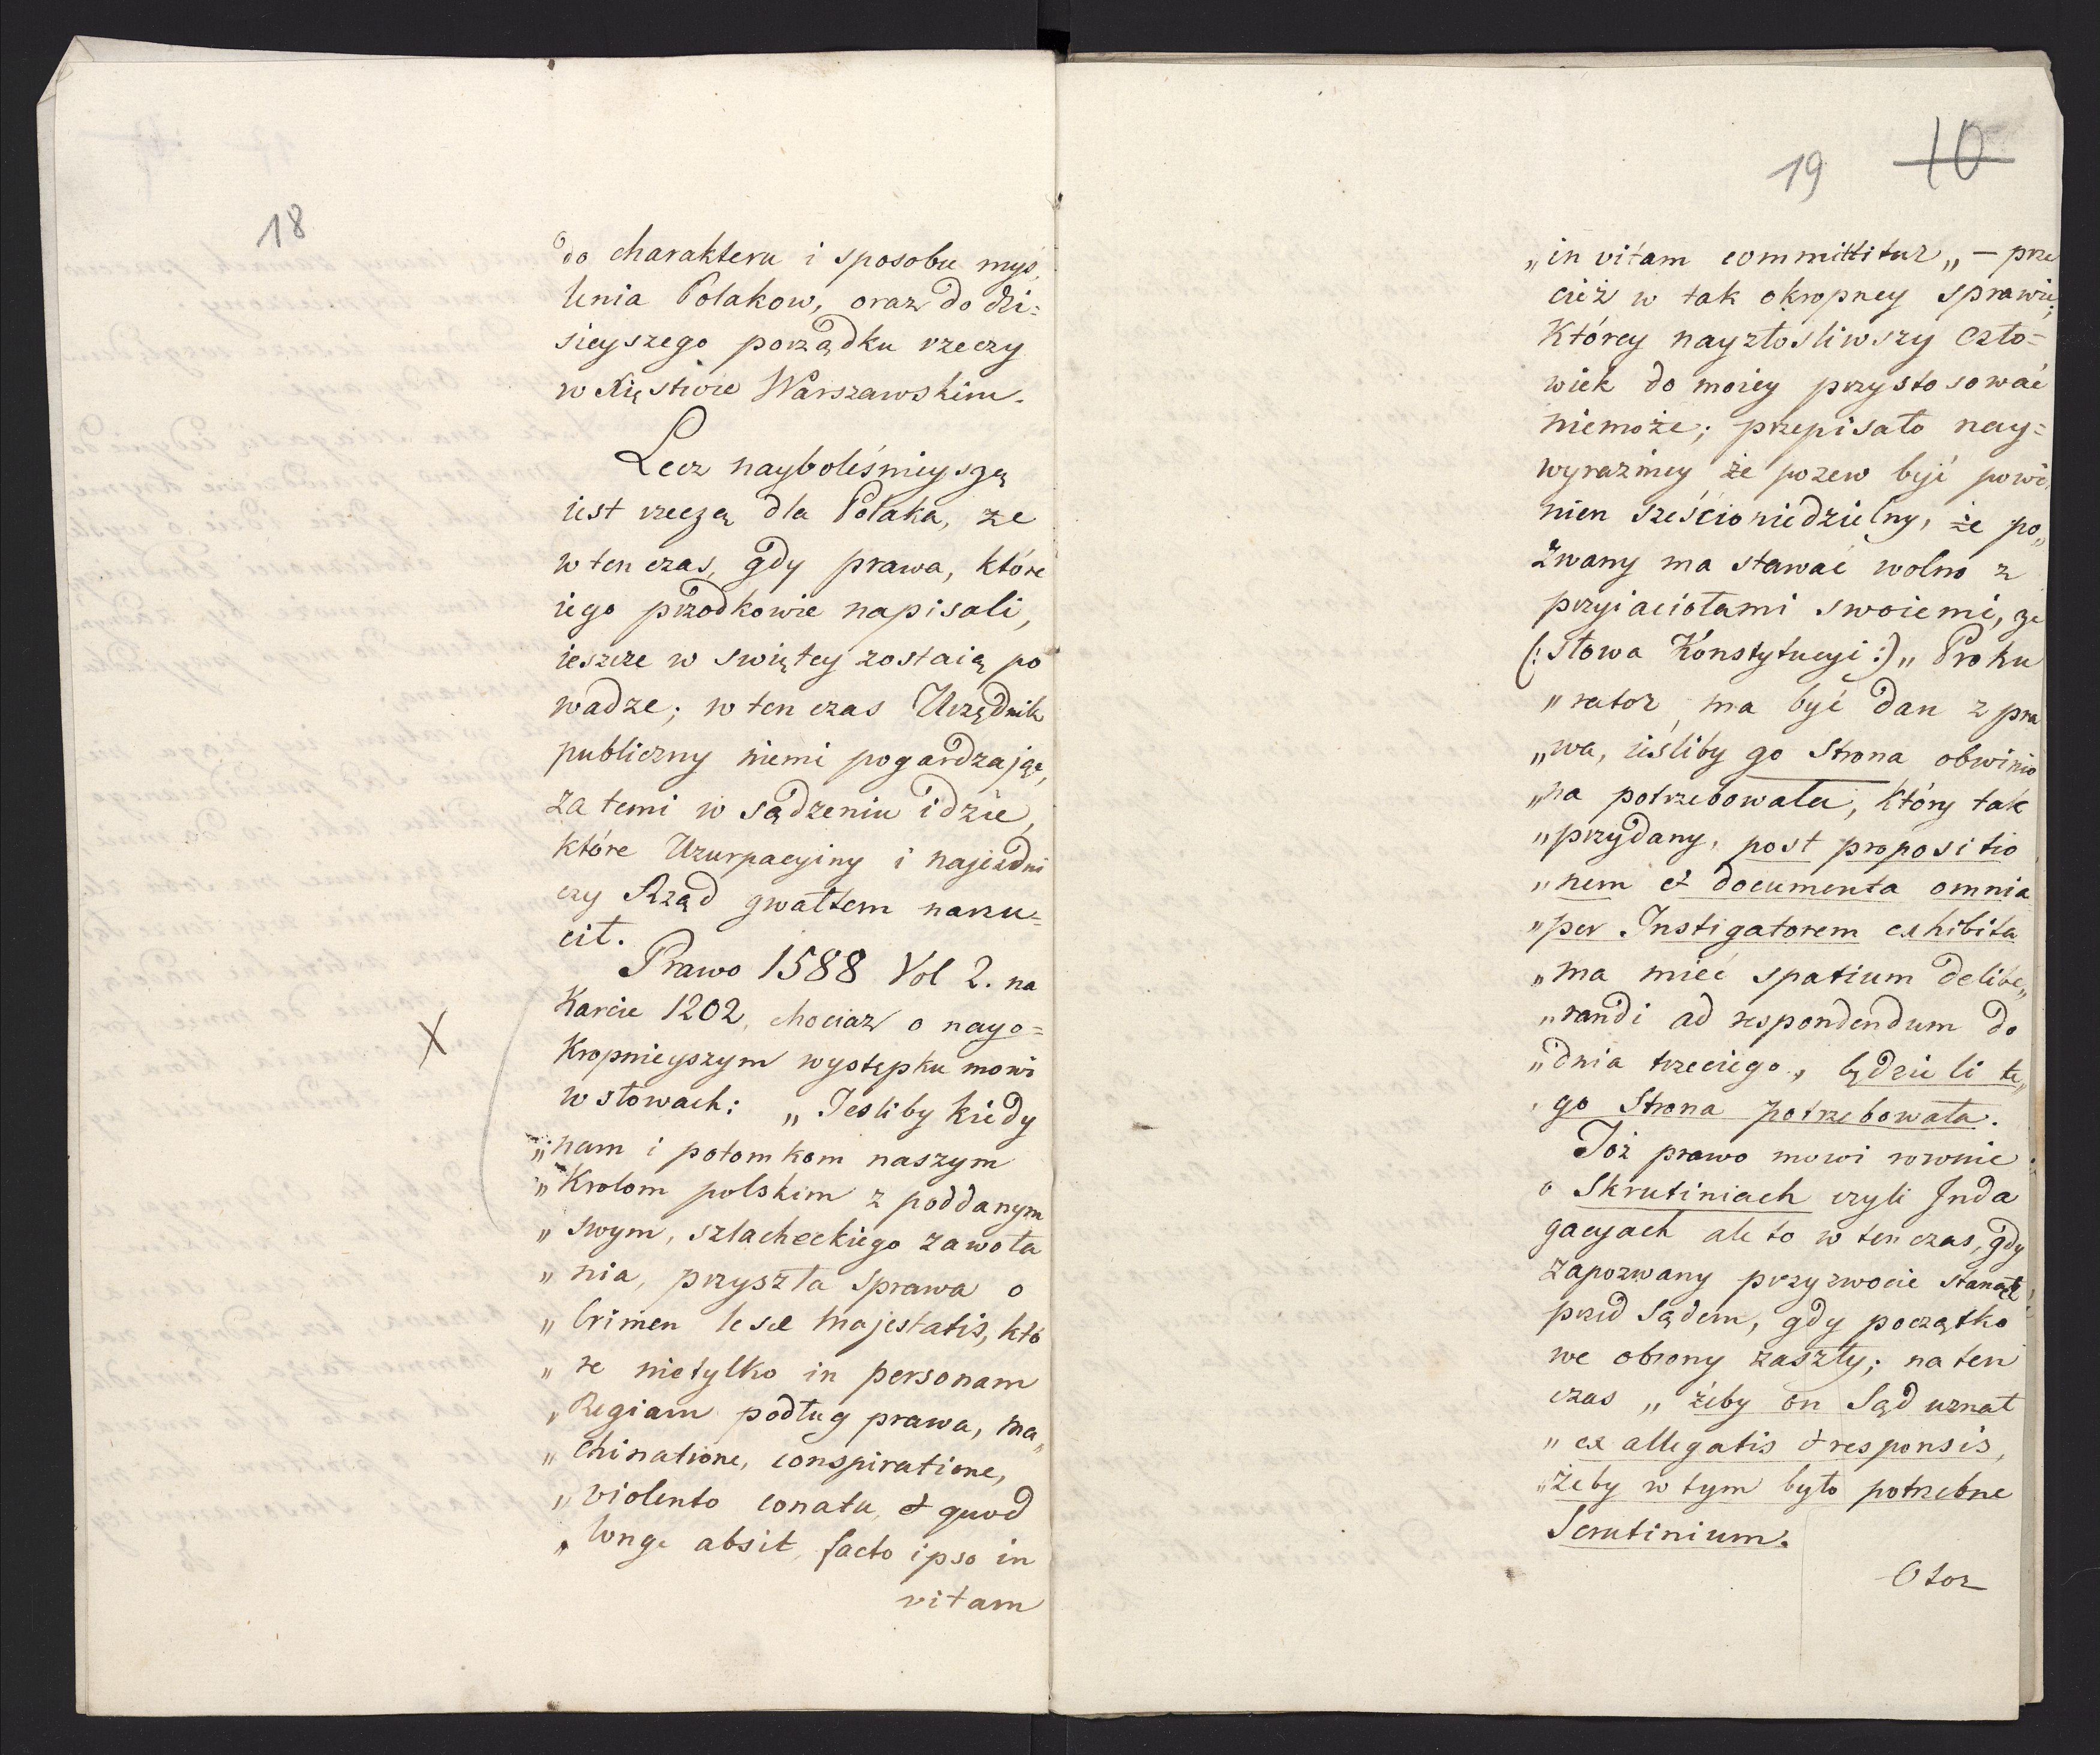 18
do charakteru i sposobu myś,
lenia Polakow, oraz do dzi=
sieyszego porządku rzeczy
w Xięstwie Warszawskim.
Lecz nayboleśnieyszą
iest rzeczą dla Polaka, że
w ten czas, gdy prawa, które
iego przodkowie napisali,
ieszcze w swiętey zostaią po
wadze; w ten czas Urzędnik
publiczny niemi pogardzając,
za temi w sądzeniu idzie,
które Uzurpacyiny i najezdni
czy Rząd gwałtem narzu=
cił.
Prawo 1588 Vol 2. na
Karcie 1202, chociaz o nayo=
kropnieyszym występku mowi
w słowach: „Jesliby kiedy
„nam i potomkom naszym
„Krolom polskim z poddanym
„swym, szlacheckiego zawoła
„nia, przyszła sprawa o
„Crimen lesæ Majestatis, któ
„re nietylko in personam
„Regiam podług prawa, ma„
„chinatione, conspiratione,
„violento conatu, & quod
„longe absit, facto ipso in
vitam
X
19 10
„in vitam committitur„ – prze
cież w tak okropney sprawie;
Którey nayzłosliwszy czło=
wiek do moiey przystosować
niemoże; przepisało nay=
wyrazniey że pozew być powi„
nien sześcioniedzielny, że po„
zwany ma stawać wolno z
przyiaciołami swoiemi, że
(: Słowa Konstytucyi :) „Proku
„rator ma być dan z pra
„wa, ieśliby go Strona obwinio
„na potrzebowała, który tak
„przydany, post propositio
„nem et documenta omnia
„per Instigatorem exhibita
„ma mieć spatium delibe„
„randi ad respondendum do
„dnia trzeciego, będzie li te„
„go Strona potrzebowała.
Toż prawo mowi rownie
o Skrutiniach czyli Inda
gacyach ale to w ten czas, gdy
zapozwany przyzwocie stanął
przed Sądem, gdy początko
we obrony zaszły; na ten
czas „żeby on Sąd uznał
„ex allegatis & responsis,
„żeby w tym było potrzebne
Scrutinium.
Otoz